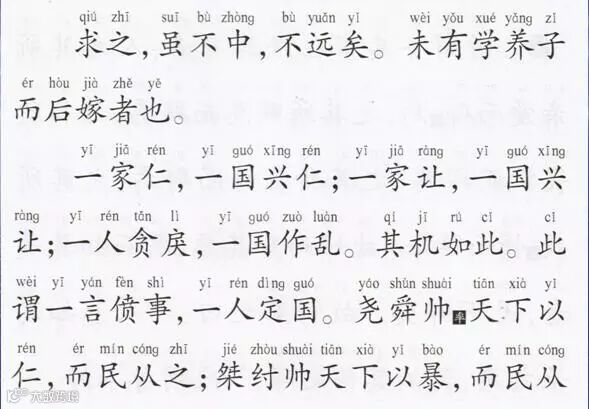 qiú zhī suī bù zhòng bù yuǎn yǐ wèi yǒu xué yǎng zǐ
求之,虽不中,不远矣。未有学养子
ér hòu jià zhě yě
而后嫁者也。
yī jiā rén yī guó xīng rén yī jiā ràng yī guó xīng
一家仁,一国兴仁;一家让,一国兴
ràng yī rén tān lì yī guó zuò luàn qí jī rú cǐ cǐ
让;一人贪戾,一国作乱。其机如此。此
wèi yī yán fèn shì yī rén dìng guó yáo shùn shuài tiān xià yǐ
谓一言偾事,一人定国。尧舜帅天下以
rén ér mín cóng zhī jié zhòu shuài tiān xià yǐ bào ér mín cóng
仁,而民从之;桀纣帅天下以暴,而民从